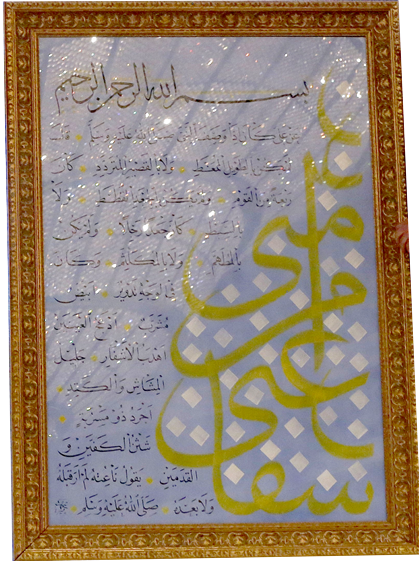 بسم الله الرحمن الرحيم
عن علي كان اذا وصف النبي صلى الله عليه وسلم قال
لم يكن بالطويل الممغط ولا بالقصير المتردد كان
ربعة من القوم ولم يكن بالجعد القطط ولا
بالسبط كان جعدا رجلا ولم يكن
بالمطهم ولا بالمكلثم وكان
في الوجه تدوير ابيض
مشرب ادعج العينين
اهدب الاشفار جليل
المشاش والكتد
اجرد ذو مسربة
شثن الكفين و
القدمين يقول ناعته لم ار قبله
ولا بعده صلى الله عليه وسلم